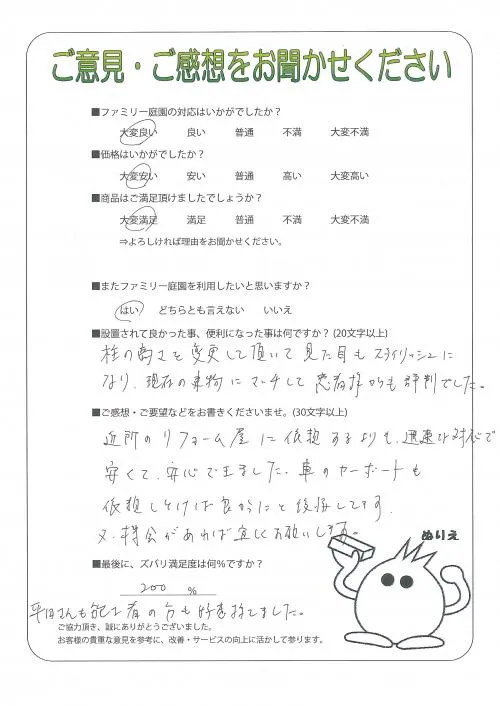 ご意見・ご感想をお聞かせください
■ファミリー庭園の対応はいかがでしたか?
大変良い 良い 普通 不満 大変不満
■価格はいかがでしたか?
大変安い 安い 普通 高い 大変高い
■商品はご満足頂けましたでしょうか?
大変満足 満足 普通 不満 大変不満
⇒よろしければ理由をお聞かせください。
■またファミリー庭園を利用したいと思いますか?
はい どちらとも言えない いいえ
■設置されて良かった事、便利になった事は何ですか?(20文字以上)
柱の高さを変更して頂いて見た目もスタイリッシュに
なり、現在の建物にマッチして患者様からも評判でした。
■ご感想・ご要望などをお書きくださいませ。(30文字以上)
近所のリフォーム屋に依頼するよりも、迅速な対応で
安くて、安心できました。車のカーポートも
依頼しとけば良かったと後悔してます。
又、機会があれば宜しくお願いします。
ぬりえ
■最後に、ズバリ満足度は何%ですか?
200 %
平田さんも の方も好感持てました。
ご協力頂き、誠にありがとうございました。
お客様の貴重な意見を参考に、改善・サービスの向上に活かして参ります。